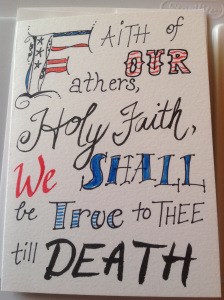 FAITH of
OUR
Fathers,
Holy Faith,
We SHALL
be True to THEE
till DEATH